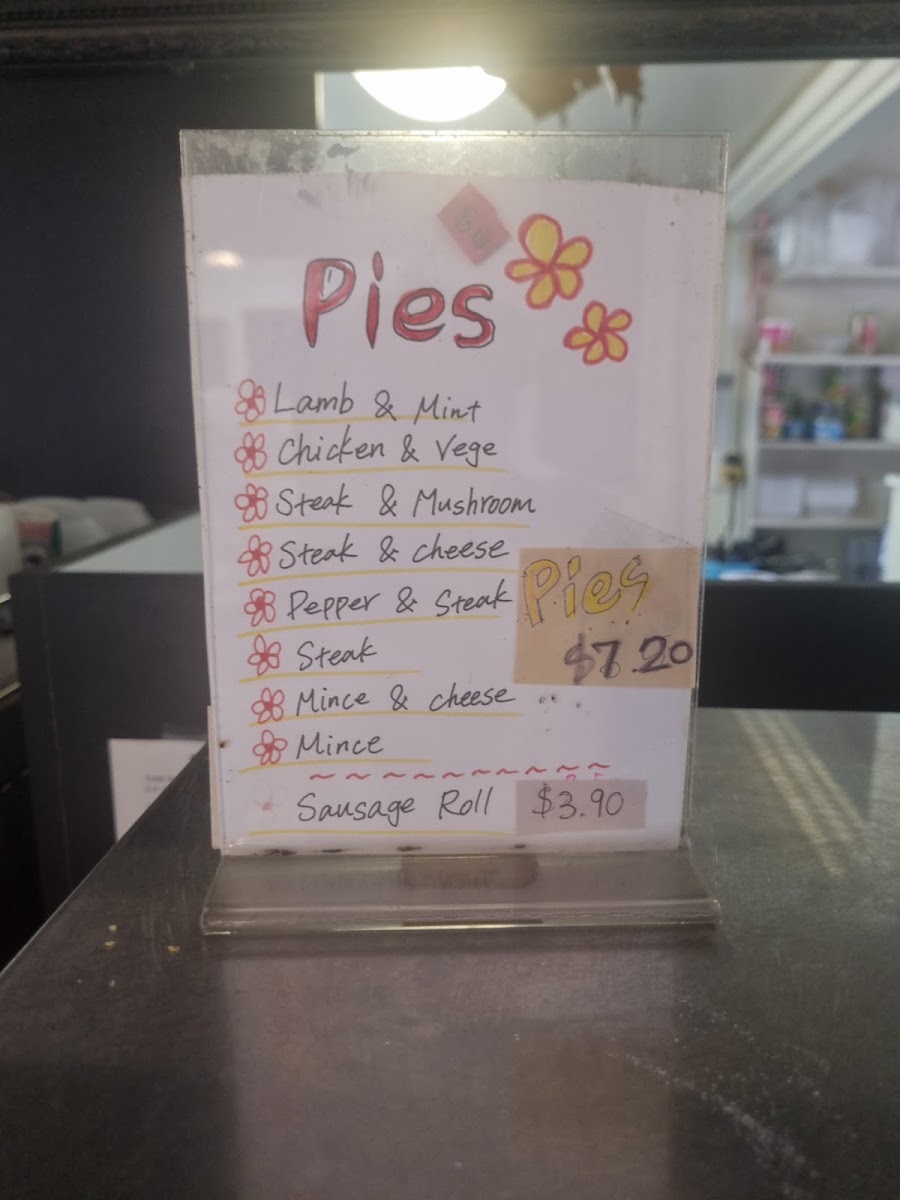 Pies
Lamb & Mint
Chicken & Vege
Steak & Mushroom
Steak & cheese
Pepper & Steak
Pies
$7.20
Steak
Mince & cheese
Mince
Sausage Roll $3.90